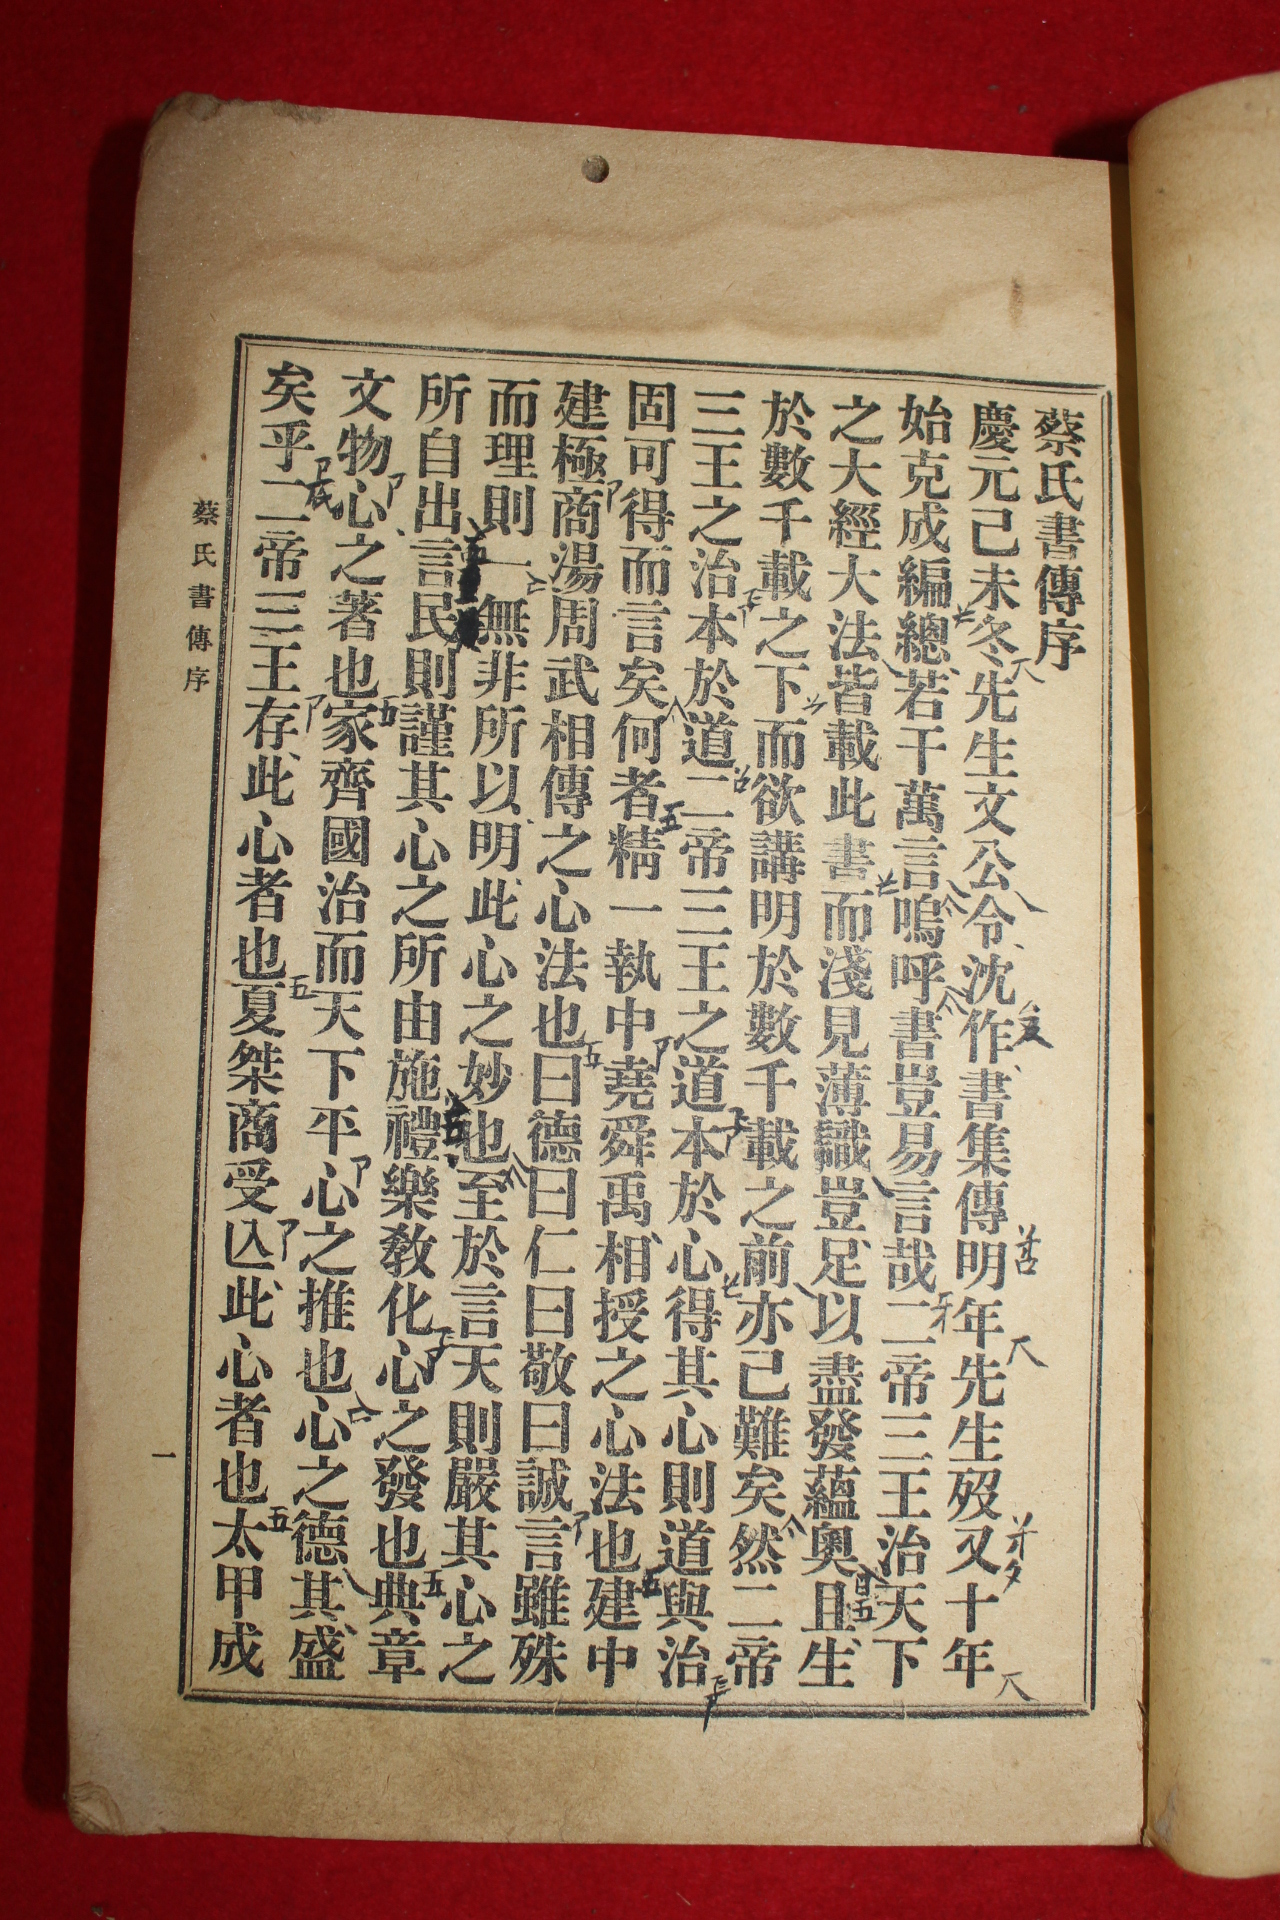 蔡氏書傳序
慶元己未冬先生文公令沈作書集傳明年先生歿又十年
始克成編總若干萬言嗚呼書豈易言哉二帝三王治天下
之大經大法皆載此書而淺見薄識豈足以盡發蘊奧且生
於數千載之下而欲講明於數千載之前亦己難矣然二帝
三王之治本於道二帝三王之道本於心得其心則道與治
固可得而言矣何者精一執中堯舜禹相授之心法也建中
建極商湯周武相傳之心法也曰德曰仁曰敬曰誠言雖殊
而理則一無非所以明此心之妙也至於言天則嚴其心之
所自出言民則謹其心之所由施禮樂敎化心之發也典章
文物心之著也家齊國治而天下平心之推也心之德其盛
矣乎二帝三王存此心者也夏桀商受亾此心者也太甲成
蔡氏書傳序
一